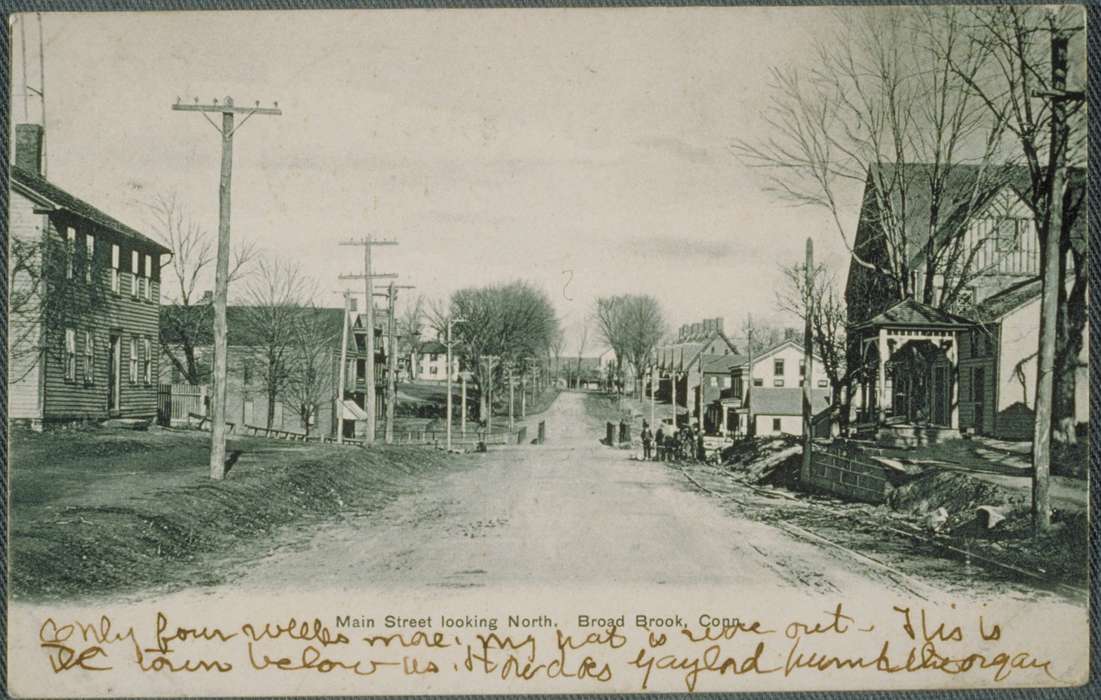 Main Street looking North. Broad Brook, Conn.
Only four weeks more. my hat is out - This is
the town below us. How does Gaylord the organ